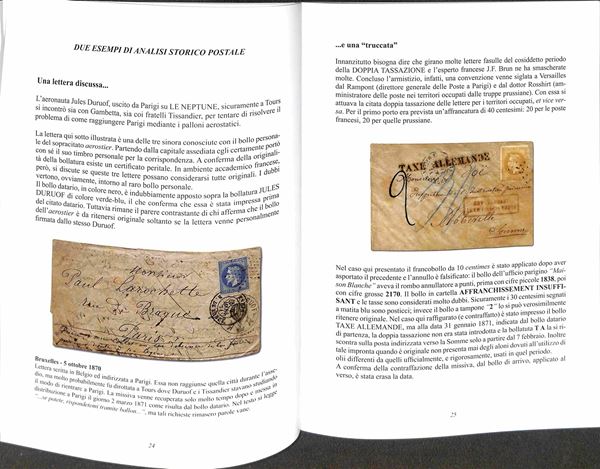 DUE ESEMPI DI ANALISI STORICO POSTALE
Una lettera discussa...
L'aeronauta Jules Duruof, uscito da Parigi su LE NEPTUNE, sicuramente a Tours
si incontrò sia con Gambetta, sia coi fratelli Tissandier, per tentare di risolvere il
problema di come raggiungere Parigi mediante i palloni aerostatici.
La lettera qui sotto illustrata è una delle tre sinora conosciute con il bollo persona-
le del sopracitato aerostier. Partendo dalla capitale assediata egli certamente portò
con sé il suo timbro personale per la corrispondenza. A conferma della originali-
tà della bollatura esiste un certificato peritale. In ambiente accademico francese,
però, si discute se queste tre lettere possano considerarsi tutte originali. I dubbi
vertono, ovviamente, intorno al raro bollo personale.
Il bollo datario, in colore nero, è indubbiamente apposto sopra la bollatura JULES
DURUOF di colore verde-blu, il che conferma che essa è stata impressa prima
del citato datario. Tuttavia rimane il parere contrastante di chi afferma che il bollo
dell'aerostier è da ritenersi originale soltanto se la lettera venne personalmente
firmata dallo stesso Duruof.
Monsieur
Paul Larochette
Bruxelles - 5 ottobre 1870
Lettera scritta in Belgio ed indirizzata a Parigi. Essa non raggiunse quella città durante l'asse-
dio, ma molto probabilmente fu dirottata a Tours dove Duruof e i Tissandier stavano studiando
il modo di rientrare a Parigi. La missiva venne recuperata solo molto tempo dopo e messa in
distribuzione a Parigi il giorno 2 marzo 1871 come risulta dal bollo datario. Nel testo si legge
"...se potete, rispondetemi tramite ballon...", ma tali richieste rimasero parole vane.
24
...e una "truccata"
Innanzitutto bisogna dire che girano molte lettere fasulle del cosiddetto periodo
della DOPPIA TASSAZIONE e l'esperto francese J.F. Brun ne ha smascherate
molte. Concluso l'armistizio, infatti, una convenzione venne siglata a Versailles
dal Rampont (direttore generale delle Poste a Parigi) e dal dottor Rosshirt (am-
ministratore delle poste nei territori occupati dalle truppe prussiane). Con essa si
attuava la citata doppia tassazione delle lettere per i territori occupati, et vice ver-
sa. Per il primo porto era prevista un'affrancatura di 40 centesimi: 20 per le poste
francesi, 20 per quelle prussiane.
TAXE ALLEMANDE
2
Somme
Nel caso qui presentato il francobollo da 10 centimes è stato applicato dopo aver
asportato il precedente e l'annullo è falsificato: il bollo dell'ufficio parigino "Mai-
son Blanche" aveva il rombo annullatore a punti, prima con cifre piccole 1838, poi
con cifre grosse 2170. Il bollo in cartella AFFRANCHISSEMENT INSUFFI-
SANT e le tasse sono considerati molto dubbi. Sicuramente i 30 centesimi segnati
a matita blu sono posticci; invece il bollo a tampone "2" lo si può verosimilmente
ritenere originale. Nel caso qui raffigurato (e contraffatto) è stato impresso il bollo
TAXE ALLEMANDE, ma alla data 31 gennaio 1871, indicata dal bollo datario
di partenza, la doppia tassazione non era stata introdotta e la bollatura T A la si ri-
scontra sulla posta indirizzata verso la Somme solo a partire dal 7 febbraio. Inoltre
tale impronta quando è originale non presenta mai degli aloni dovuti all'utilizzo di
oli differenti da quelli ufficialmente, e rigorosamente, usati in quel periodo.
A conferma della contraffazione della missiva, dal bollo di arrivo, applicato al
verso, è stata erasa la data.
25